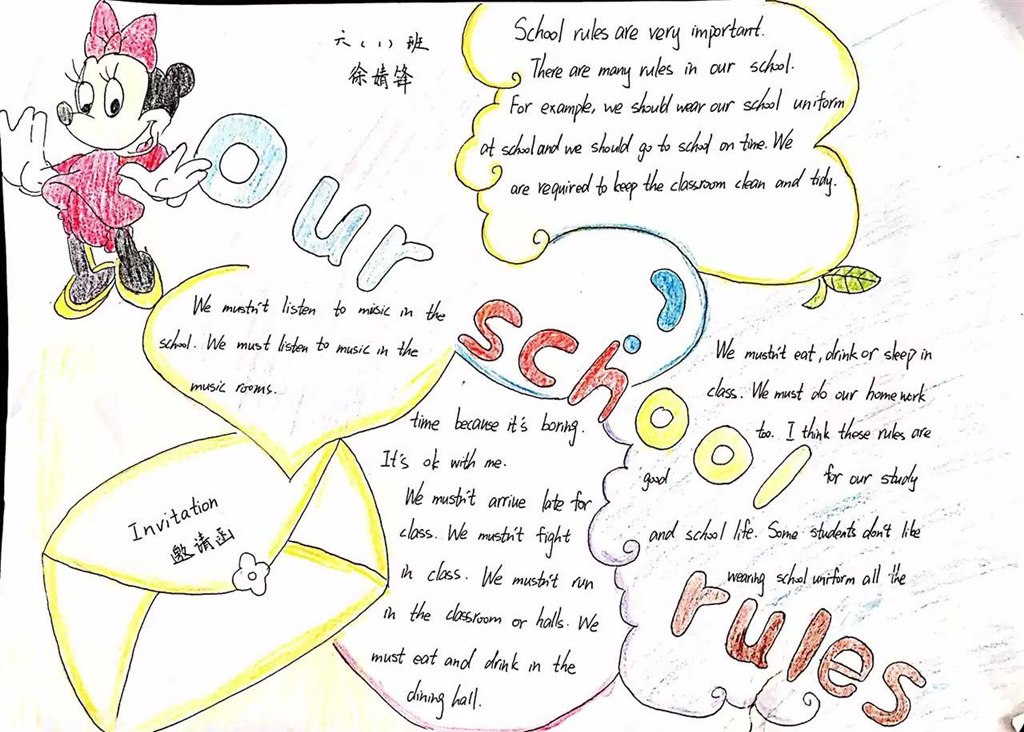 六（1）班
徐婧锋
Our
school
rules
School rules are very important.
There are many rules in our school.
For example, we should wear our school uniform
at school and we should go to school on time. We
are required to keep the classroom clean and tidy.
We mustn't listen to music in the
school. We must listen to music in the
music rooms.
We mustn't eat, drink or sleep in
class. We must do our homework
too. I think these rules are
good for our study
and school life. Some students don't like
wearing school uniform all the
time because it's boring.
It's ok with me.
We mustn't arrive late for
class. We mustn't fight
in class. We mustn't run
in the classroom or halls. We
must eat and drink in the
dining hall.
Invitation
邀请函